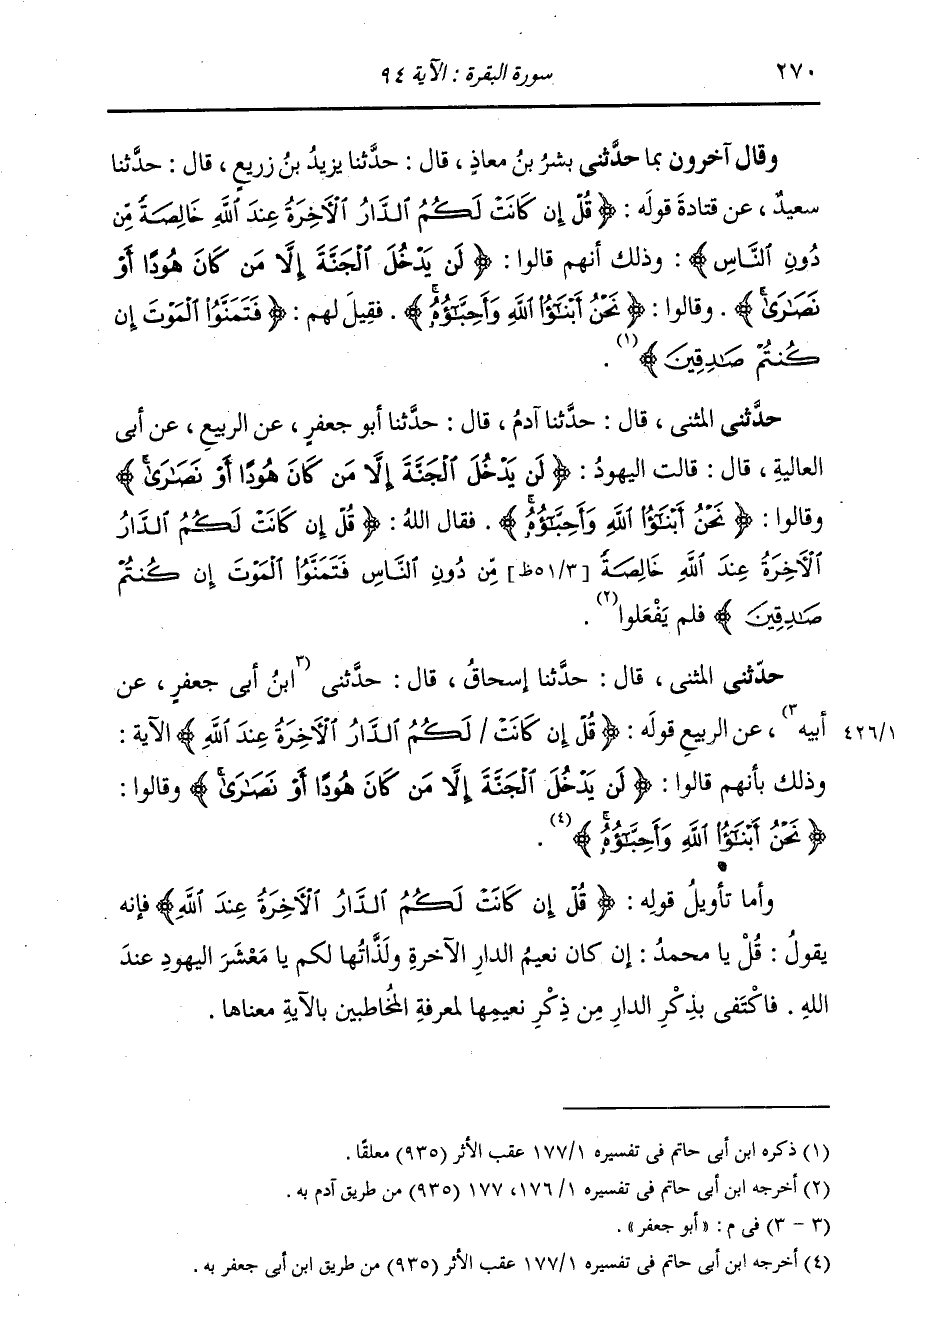 ٢٧٠
سورة البقرة : الآية ٩٤
وقال آخرون بما حدَّثنى بشرُ بنُ معاذٍ ، قال : حدَّثنا يزيدُ بنُ زريعٍ ، قال : حدَّثنا
سعيدٌ ، عن قتادةَ قولَه : ﴿ قُلْ إِن كَانَتْ لَكُمُ ٱلدَّارُ ٱلْآخِرَةُ عِندَ ٱللَّهِ خَالِصَةً مِّن
دُونِ ٱلنَّاسِ ﴾ : وذلك أنهم قالوا : ﴿ لَن يَدْخُلَ ٱلْجَنَّةَ إِلَّا مَن كَانَ هُودًا أَوْ
نَصَٰرَىٰۗ ﴾ . وقالوا : ﴿ نَحْنُ أَبْنَٰٓؤُا۟ ٱللَّهِ وَأَحِبَّٰٓؤُهُۥۚ ﴾ . فقيلَ لهم : ﴿ فَتَمَنَّوُا۟ ٱلْمَوْتَ إِن
كُنتُمْ صَٰدِقِينَ ﴾ (١) .
حدَّثنى المثنى ، قال : حدَّثنا آدمُ ، قال : حدَّثنا أبو جعفرٍ ، عن الربيعِ ، عن أبى
العاليةِ ، قال : قالت اليهودُ : ﴿ لَن يَدْخُلَ ٱلْجَنَّةَ إِلَّا مَن كَانَ هُودًا أَوْ نَصَٰرَىٰۗ ﴾
وقالوا : ﴿ نَحْنُ أَبْنَٰٓؤُا۟ ٱللَّهِ وَأَحِبَّٰٓؤُهُۥۚ ﴾ . فقال اللهُ : ﴿ قُلْ إِن كَانَتْ لَكُمُ ٱلدَّارُ
ٱلْآخِرَةُ عِندَ ٱللَّهِ خَالِصَةً [٥١/٣ظ] مِّن دُونِ ٱلنَّاسِ فَتَمَنَّوُا۟ ٱلْمَوْتَ إِن كُنتُمْ
صَٰدِقِينَ ﴾ فلم يَفْعَلوا (٢) .
حدّثنى المثنى ، قال : حدَّثنا إسحاقُ ، قال : حدَّثنى (٣ ابنُ أبى جعفرٍ ، عن
أبيه ٣) ، عن الربيعِ قولَه : ﴿ قُلْ إِن كَانَتْ / لَكُمُ ٱلدَّارُ ٱلْآخِرَةُ عِندَ ٱللَّهِ ﴾ الآية : ٤٢٦/١
وذلك بأنهم قالوا : ﴿ لَن يَدْخُلَ ٱلْجَنَّةَ إِلَّا مَن كَانَ هُودًا أَوْ نَصَٰرَىٰۗ ﴾ وقالوا :
﴿ نَحْنُ أَبْنَٰٓؤُا۟ ٱللَّهِ وَأَحِبَّٰٓؤُهُۥۚ ﴾ (٤) .
وأما تأويلُ قولِه : ﴿ قُلْ إِن كَانَتْ لَكُمُ ٱلدَّارُ ٱلْآخِرَةُ عِندَ ٱللَّهِ ﴾ فإنه
يقولُ : قُلْ يا محمدُ : إن كان نعيمُ الدارِ الآخرةِ ولَذَّاتُها لكم يا مَعْشَرَ اليهودِ عندَ
اللهِ . فاكْتَفى بذِكْرِ الدارِ مِن ذِكْرِ نعيمِها لمعرفةِ المُخاطبين بالآيةِ معناها .
(١) ذكره ابن أبى حاتم فى تفسيره ١٧٧/١ عقب الأثر (٩٣٥) معلقًا .
(٢) أخرجه ابن أبى حاتم فى تفسيره ١/ ١٧٦، ١٧٧ (٩٣٥) من طريق آدم به .
(٣ - ٣) فى م : «أبو جعفر» .
(٤) أخرجه ابن أبى حاتم فى تفسيره ١٧٧/١ عقب الأثر (٩٣٥) من طريق ابن أبى جعفر به .